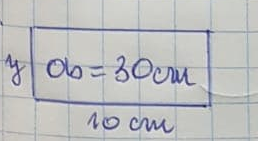 y
ob = 30 cm
10 cm